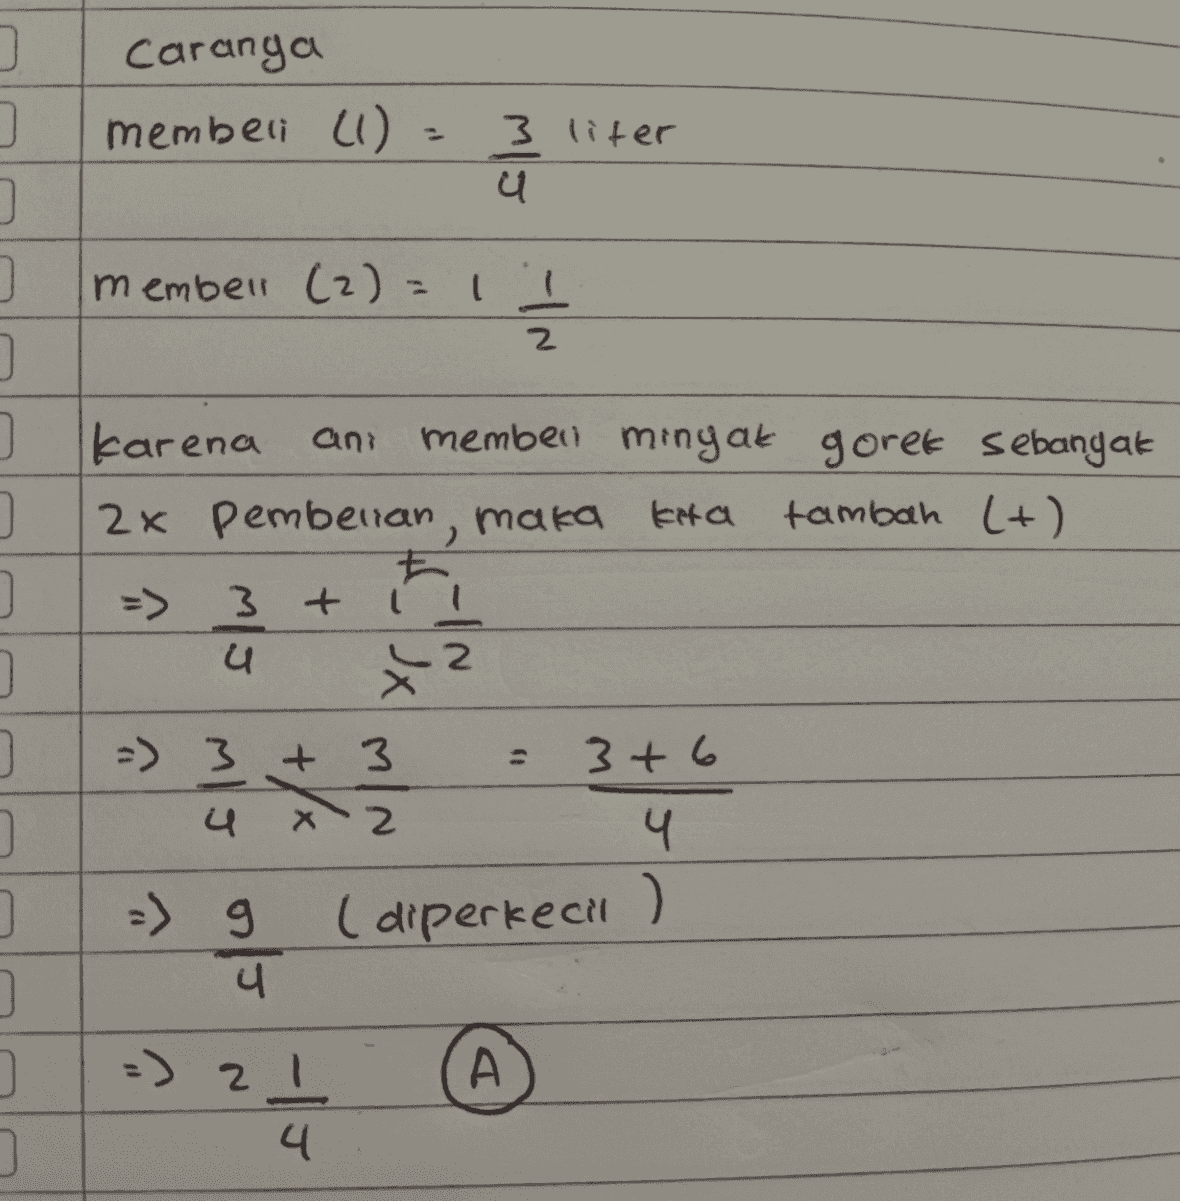 Caranya
membeli (1) = 3/4 liter
membeli (2) = 1 1/2
karena ani membeli minyak gorek sebanyak
2x pembelian, maka kita tambah (+)
=> 3/4 + 1 1/2 + x
=> 3/4 + 3/2 x = 3+6/4
=> 9/4 (diperkecil)
=> 2 1/4 A